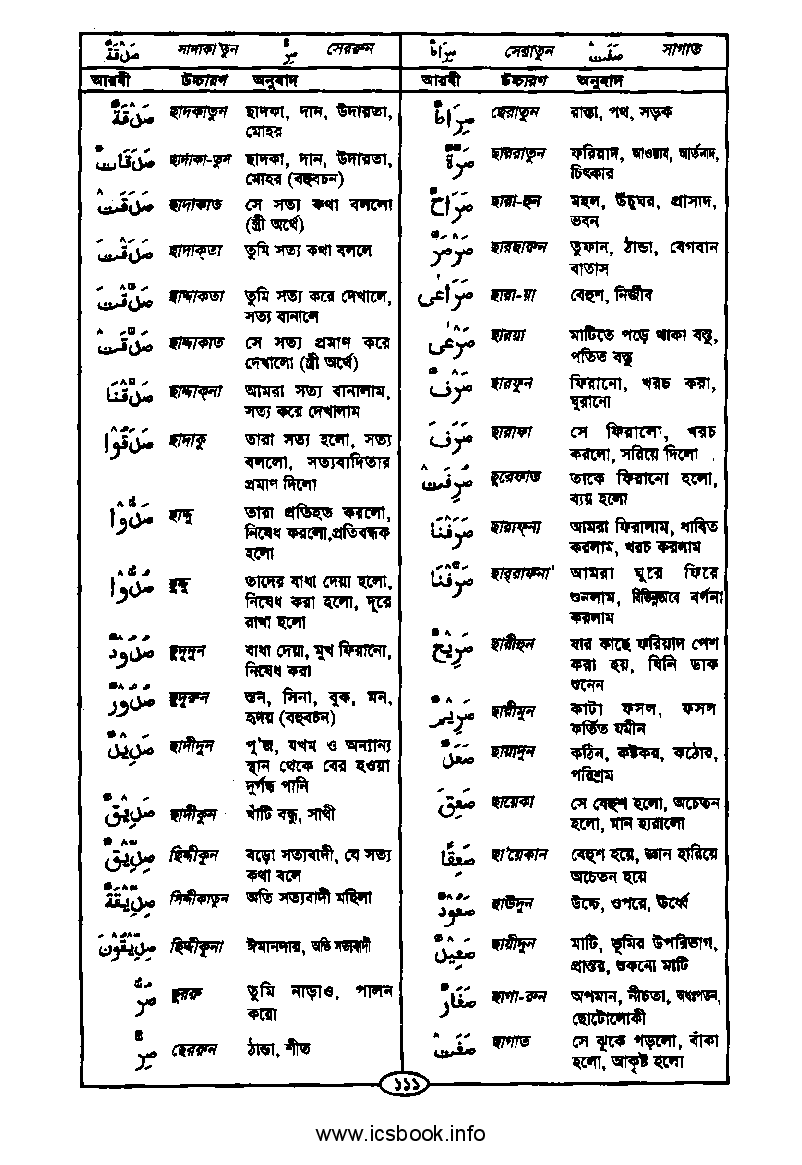 صَدَقَةٌ সাদাকাতুন صِرٌّ সেররুন
আরবী উচ্চারণ অনুবাদ
صَدَقَةٌ ছাদকাতুন ছাদকা, দান, উদারতা,
মোহর
صَدَقَاتٌ ছাদাকা-তুন ছাদকা, দান, উদারতা,
মোহর (বহুবচন)
صَدَقَتْ ছাদাকাত সে সত্য কথা বললো
(স্ত্রী অর্থে)
صَدَقْتَ ছাদাক্তা তুমি সত্য কথা বললে
صَدَّقْتَ ছাদ্দাকতা তুমি সত্য করে দেখালে,
সত্য বানালে
صَدَّقَتْ ছাদ্দাকাত সে সত্য প্রমাণ করে
দেখালো (স্ত্রী অর্থে)
صَدَّقْنَا ছাদ্দাক্না আমরা সত্য বানালাম,
সত্য করে দেখালাম
صَدَقُوْا ছাদাকু তারা সত্য হলো, সত্য
বললো, সত্যবাদিতার
প্রমাণ দিলো
صَدُّوْا ছাদ্দু তারা প্রতিহত করলো,
নিষেধ করলো,প্রতিবন্ধক
হলো
صُدُّوْا ছুদ্দু তাদের বাধা দেয়া হলো,
নিষেধ করা হলো, দূরে
রাখা হলো
صُدُوْدٌ ছুদূদুন বাধা দেয়া, মুখ ফিরানো,
নিষেধ করা
صُدُوْرٌ ছুদূরুন স্তন, সিনা, বুক, মন,
হৃদয় (বহুবচন)
صَدِيْدٌ ছাদীদুন পূঁজ, যখম ও অন্যান্য
স্থান থেকে বের হওয়া
দুর্গন্ধ পানি
صَدِيْقٌ ছাদীকুন খাঁটি বন্ধু, সাথী
صِدِّيْقٌ ছিদ্দীকুন বড়ো সত্যবাদী, যে সত্য
কথা বলে
صِدِّيْقَةٌ সিদ্দীকাতুন অতি সত্যবাদী মহিলা
صِدِّيْقُوْنَ ছিদ্দীকূনা ঈমানদার, অতি সত্যবাদী
صُرْ ছুরু তুমি নাড়াও, পালন
করো
صِرٌّ ছেররুন ঠান্ডা, শীত
صِرَاطٌ সেরাতুন صَغَتْ সাগাত
আরবী উচ্চারণ অনুবাদ
صِرَاطٌ ছেরাতুন রাস্তা, পথ, সড়ক
صَرَّةٌ ছাররাতুন ফরিয়াদ, আওয়ায, আর্তনাদ,
চিৎকার
صَرْحٌ ছারা-হুন মহল, উঁচুঘর, প্রাসাদ,
ভবন
صَرْصَرٌ ছারছারুন তুফান, ঠান্ডা, বেগবান
বাতাস
ছারা-য়া বেহুশ, নির্জীব
صَرْعٰى ছারয়া মাটিতে পড়ে থাকা বস্তু,
পতিত বস্তু
صَرْفٌ ছারফুন ফিরানো, খরচ করা,
ঘুরানো
صَرَفَ ছারাফা সে ফিরালো, খরচ
করলো, সরিয়ে দিলো
صُرِفَتْ ছুরেফাত তাকে ফিরানো হলো,
ব্যয় হলো
صَرَفْنَا ছারাফ্না আমরা ফিরালাম, ধাবিত
করলাম, খরচ করলাম
صَرَّفْنَا ছার্‌রাফনা আমরা ঘুরে ফিরে
শুনলাম, বিভিন্নভাবে বর্ণনা
করলাম
صَرِيْخٌ ছারীহুন যার কাছে ফরিয়াদ পেশ
করা হয়, যিনি ডাক
শুনেন
صَرِيْمٌ ছারীমুন কাটা ফসল, ফসল
কর্তিত যমীন
صَعَدٌ ছায়াদুন কঠিন, কষ্টকর, কঠোর,
পরিশ্রম
صَعِقَ ছায়েকা সে বেহুশ হলো, অচেতন
হলো, মান হারালো
صَعِقًا ছা'য়েকান বেহুশ হয়ে, জ্ঞান হারিয়ে
অচেতন হয়ে
صَعُوْدٌ ছাউদুন উচ্চে, ওপরে, ঊর্ধ্বে
صَعِيْدٌ ছায়ীদুন মাটি, ভূমির উপরিভাগ,
প্রান্তর, শুকনো মাটি
صَغَارٌ ছাগা-রুন অপমান, নীচতা, অধঃপতন,
ছোটোলোকী
صَغَتْ ছাগাত সে ঝুকে পড়লো, বাঁকা
হলো, আকৃষ্ট হলো
১১১
www.icsbook.info